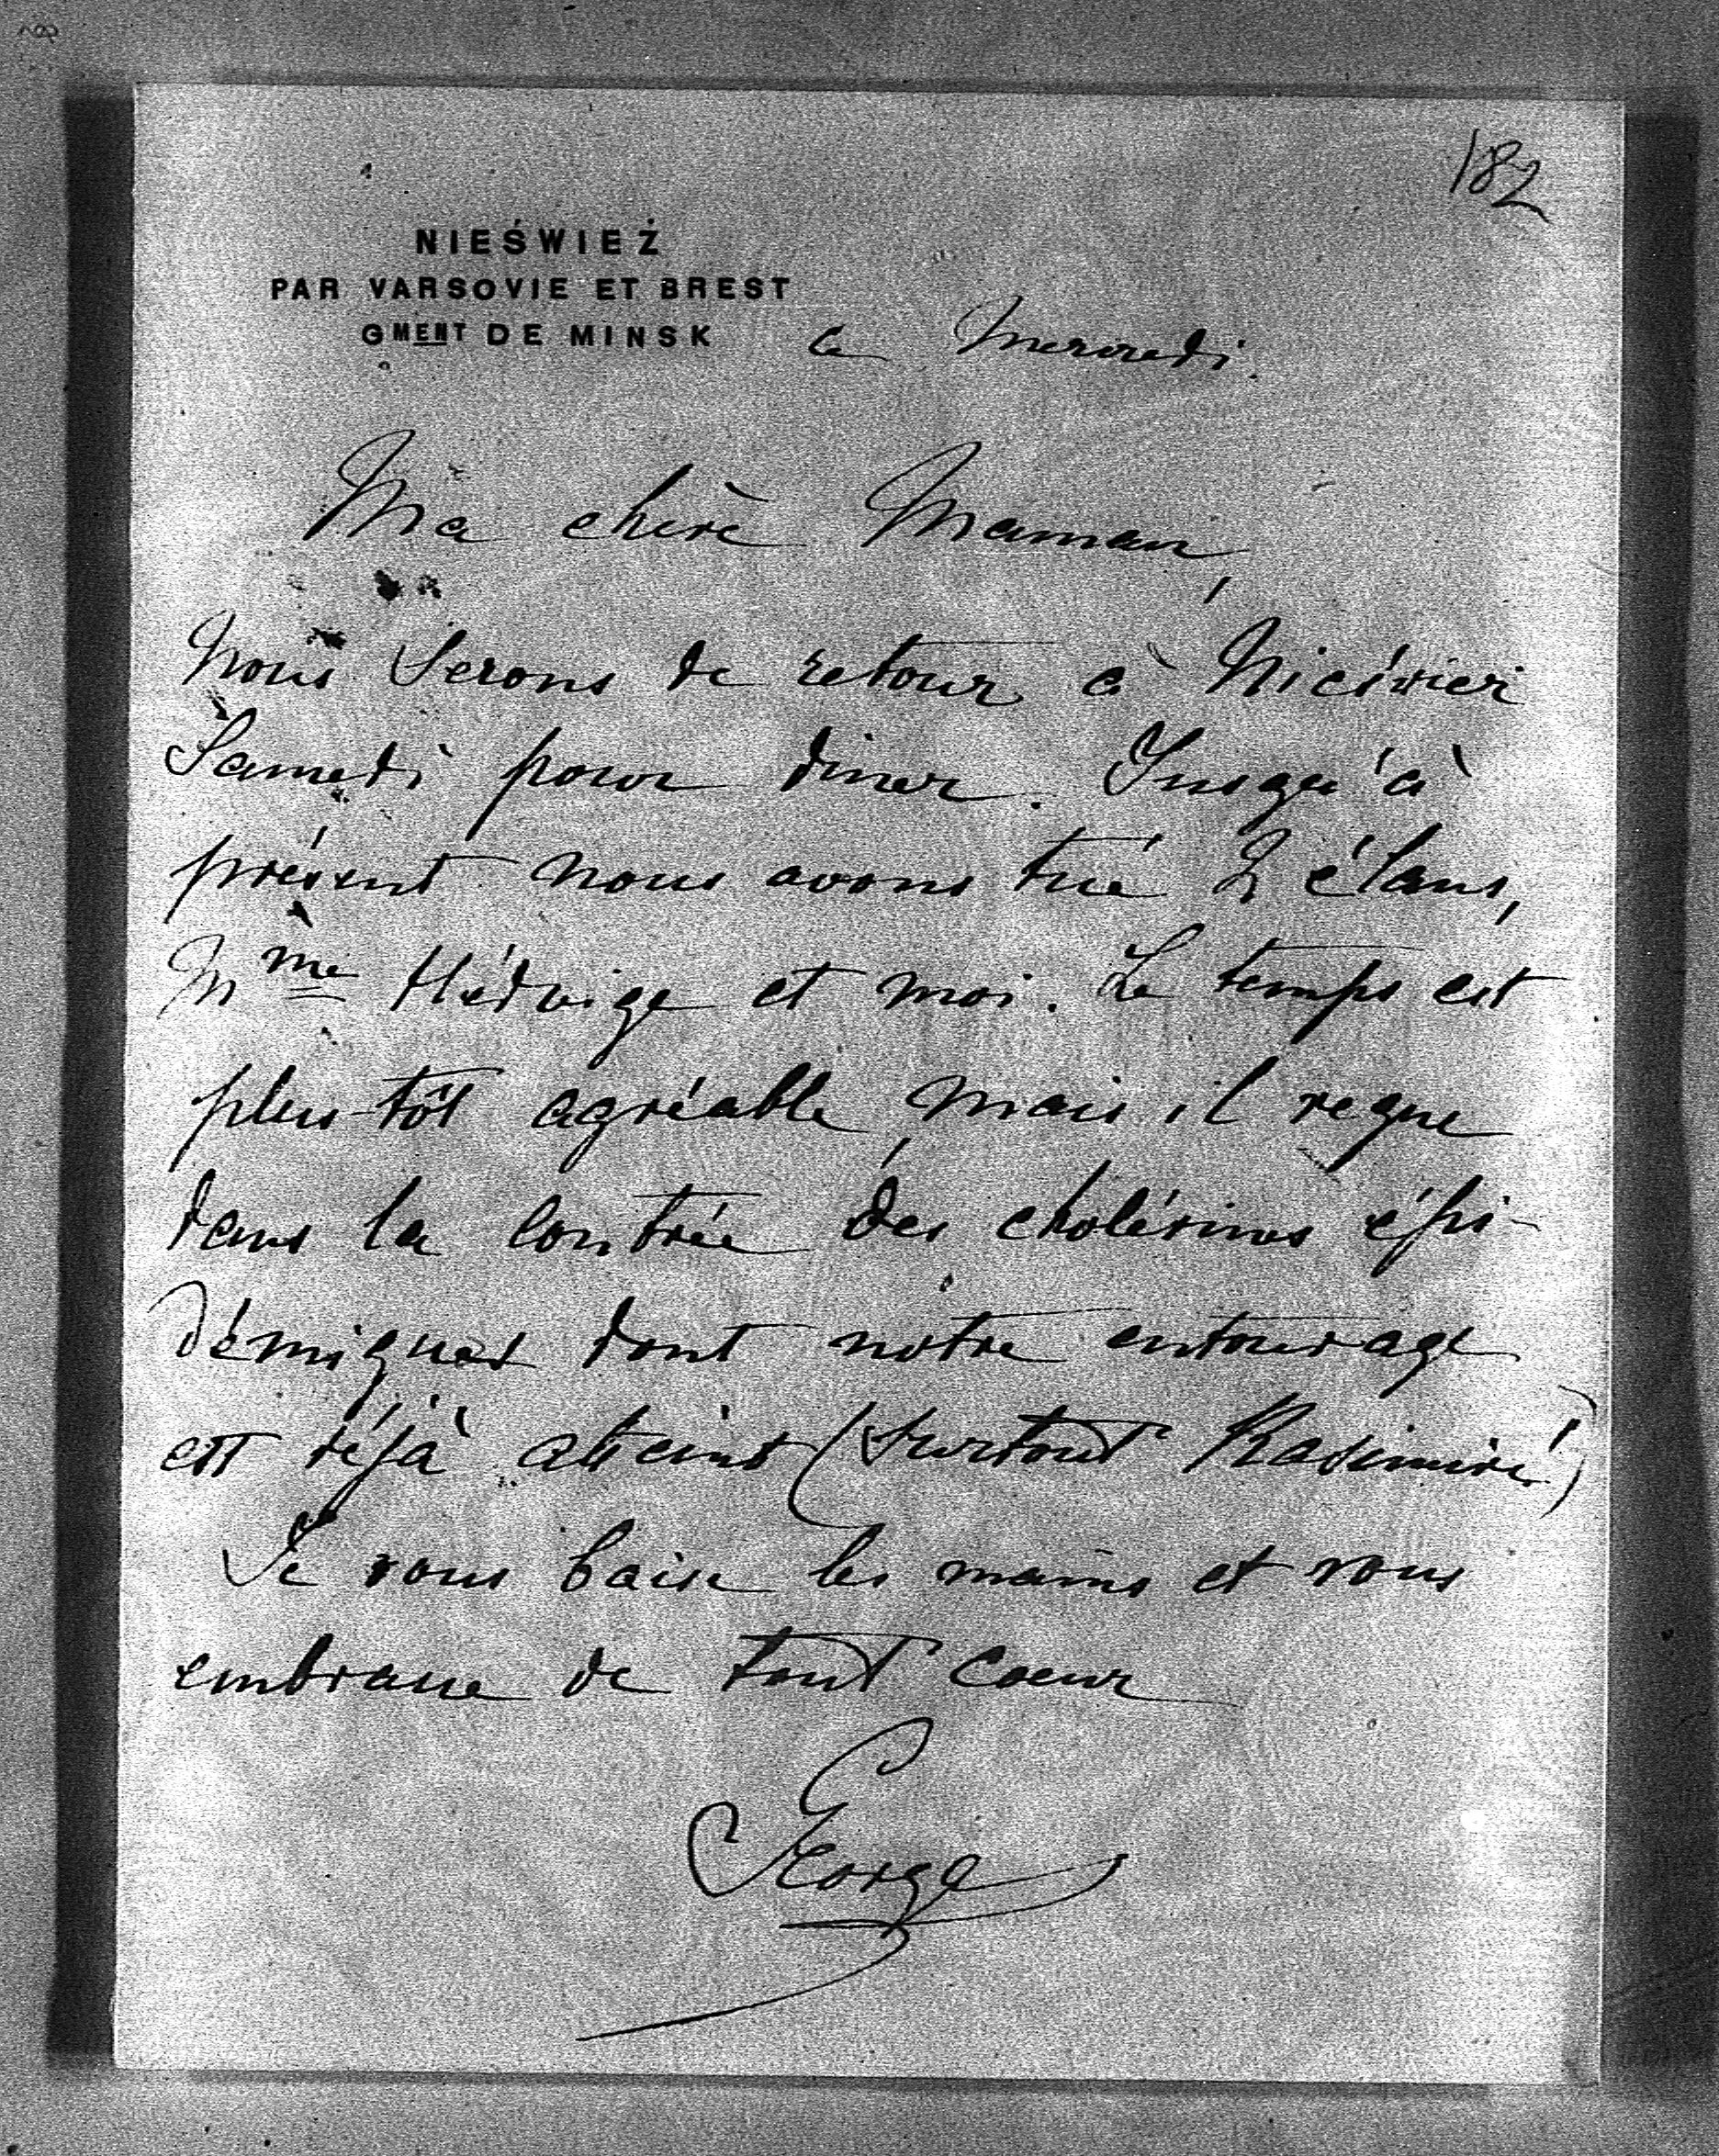 182
NIEŚWIEŻ
PAR VARSOVIE ET BREST
GMENT DE MINSK
ce Mercredi.
Ma chère Maman,
Nous serons de retour à Nieśwież
Samedi pour diner. Jusqu'à
présent nous avons tué 2 élans,
Mme Hédwige et moi. Le temps est
plus-tôt agréable, mais il regne
dans la contrée des cholérines épi-
démiques dont notre entourage
est déjà atteint (surtout Kasimire)
Je vous baise les mains et vous
embrasse de tout coeur
George